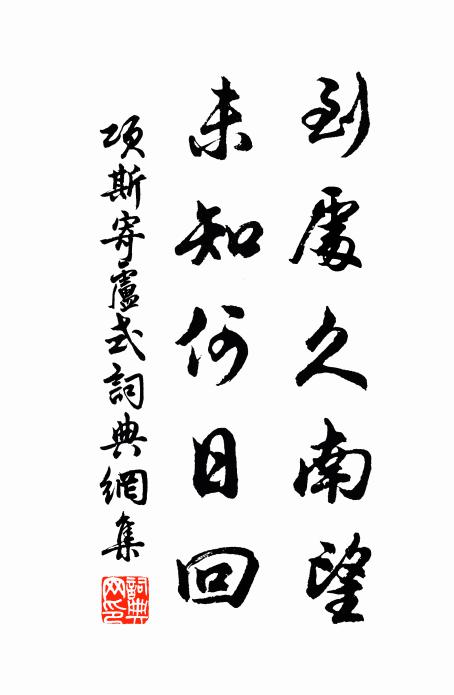 到處久南望
未知何日回
項斯寄盧式詞典網集
詞典網印